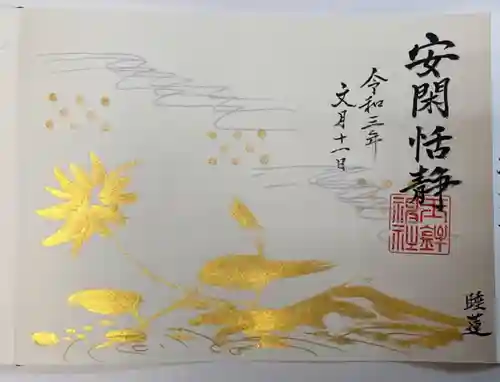 安閑恬静
令和三年
文月十一日
睦蓮